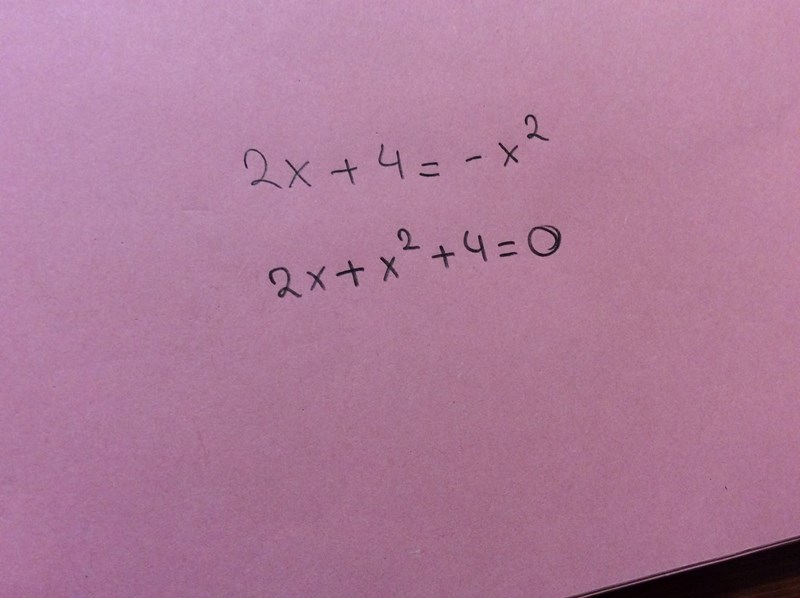 2x + 4 = - x²
2x + x² + 4 = 0